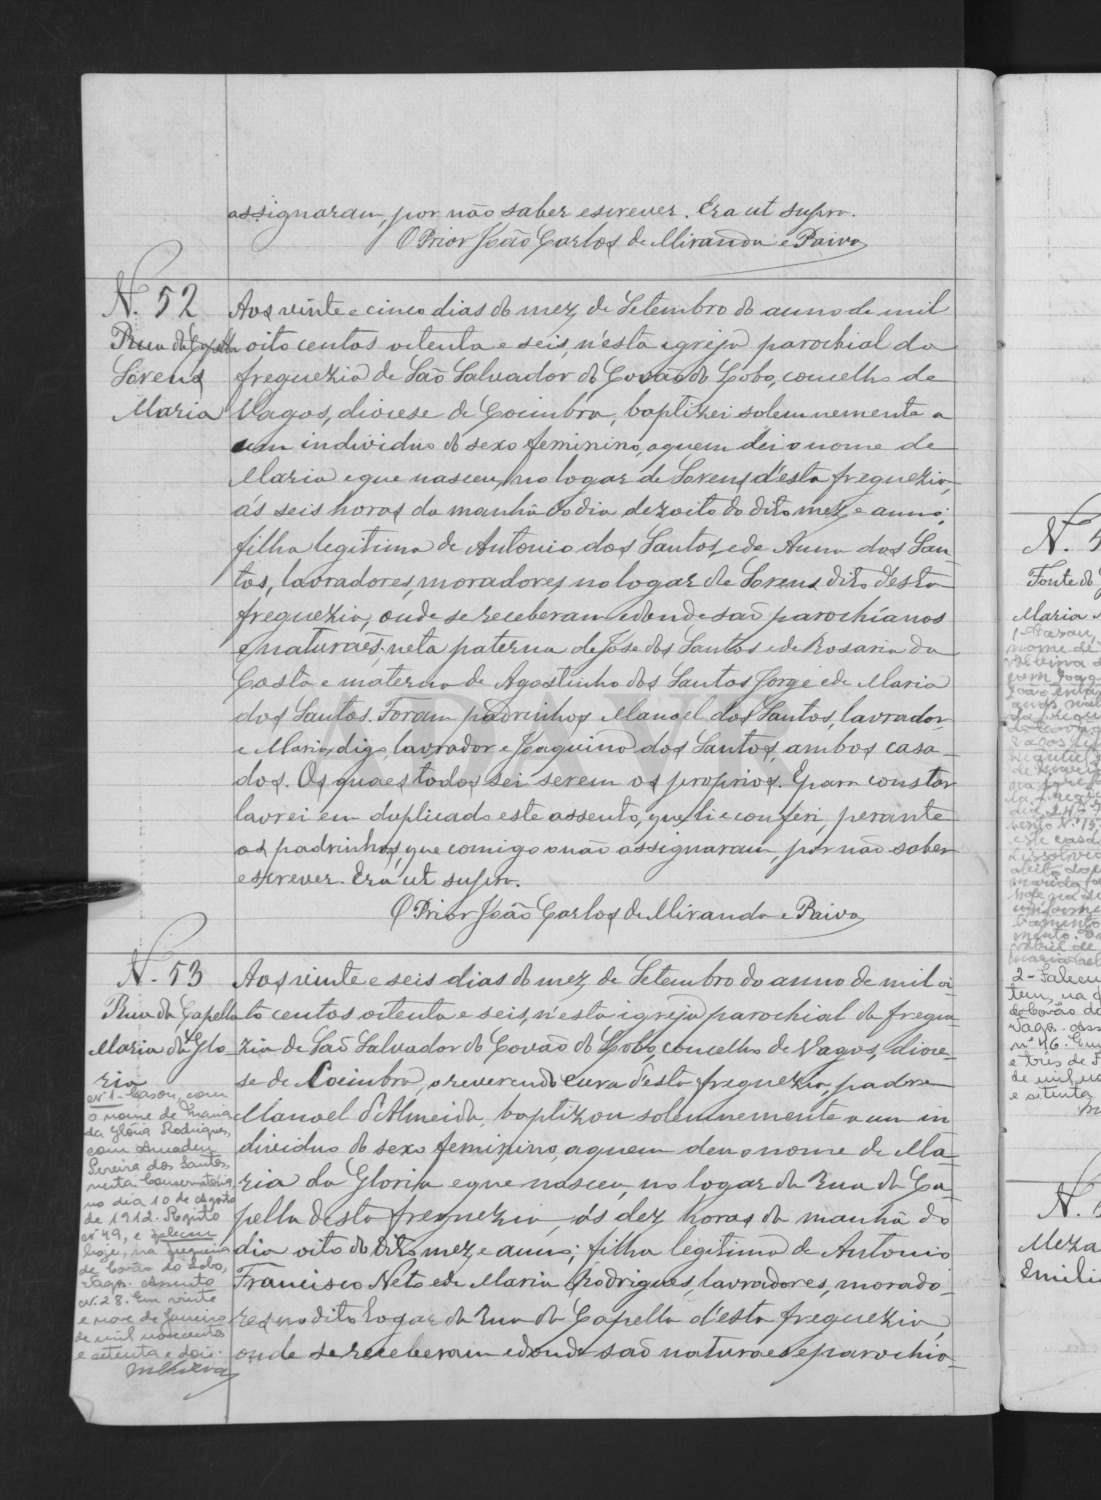 assignaram, por não saber escrever. Era ut supra.
O Prior João Carlos de Miranda e Paiva
N. 52
Rua da Capella
Sorens
Maria
Aos vinte e cinco dias do mez de Setembro do anno de mil
oito centos oitenta e seis, n'esta igreja parochial da
freguezia de São Salvador do Covão do Lobo, concelho de
Vagos, diocese de Coimbra, baptizei solemnemente a
um individuo do sexo feminino, a quem dei o nome de
Maria e que nasceu, no logar de Sorens d'esta freguezia,
ás seis horas da manhã do dia dezoito do dito mez e anno;
filha legitima de Antonio dos Santos, e de Anna dos San-
tos, lavradores, moradores, no logar de Sorens dito d'esta
freguezia, onde se receberam e donde saõ parochianos
e naturaes; neta paterna de José dos Santos e de Rosaria da
Costa e materna de Agostinho dos Santos Jorge e de Maria
dos Santos. Foram padrinhos Manoel dos Santos, lavrador,
e Maria, digo, lavrador e Joaquina dos Santos, ambos casa-
dos. Os quaes todos sei serem os proprios. E para constar
lavrei em duplicado este assento, que li e conferi, perante
os padrinhos, que comigo o não assignaram, por não saber
escrever. Era ut supra.
O Prior João Carlos de Miranda e Paiva
N. 53
Rua da Capella
Maria da Glo-
ria
Aos vinte e seis dias do mez de Setembro do anno de mil oi-
to centos oitenta e seis, n'esta igreja parochial da fregue-
zia de São Salvador do Covão do Lobo, concelho de Vagos, dioce-
se de Coimbra, o reverendo cura d'esta freguezia, padre
Manoel d'Almeida, baptizou solemnemente a um in
dividuo do sexo feminino, a quem deu o nome de Ma-
ria da Gloria e que nasceu, no logar da Rua da Ca-
pella d'esta freguezia, ás dez horas da manhã do
dia oito do dito mez e anno; filha legitima de Antonio
Francisco Neto e de Maria Rodrigues, lavradores, morado-
res no dito logar da Rua da Capella d'esta freguezia,
onde se receberam e donde saõ naturaes e parochia-
Nº 1- Casou, com
o nome de Maria
da Glória Rodrigues,
com Amadeu
Pereira dos Santos,
nesta Conservatória,
no dia 10 de Agosto
de 1912. Registo
nº 49, e faleceu
hoje, na freguesia
de Covão do Lobo,
Vagos. Assento
Nº 28. Em vinte
e nove de Janeiro
de mil novecentos
e setenta e dois.
N. 5
Fonte do
Maria
nome de
2- Faleceu
Covão do
Vagos. Ass
nº 46. Em
e três de F
de mil no
e setenta
N.
Meza
Emili
ADAVR